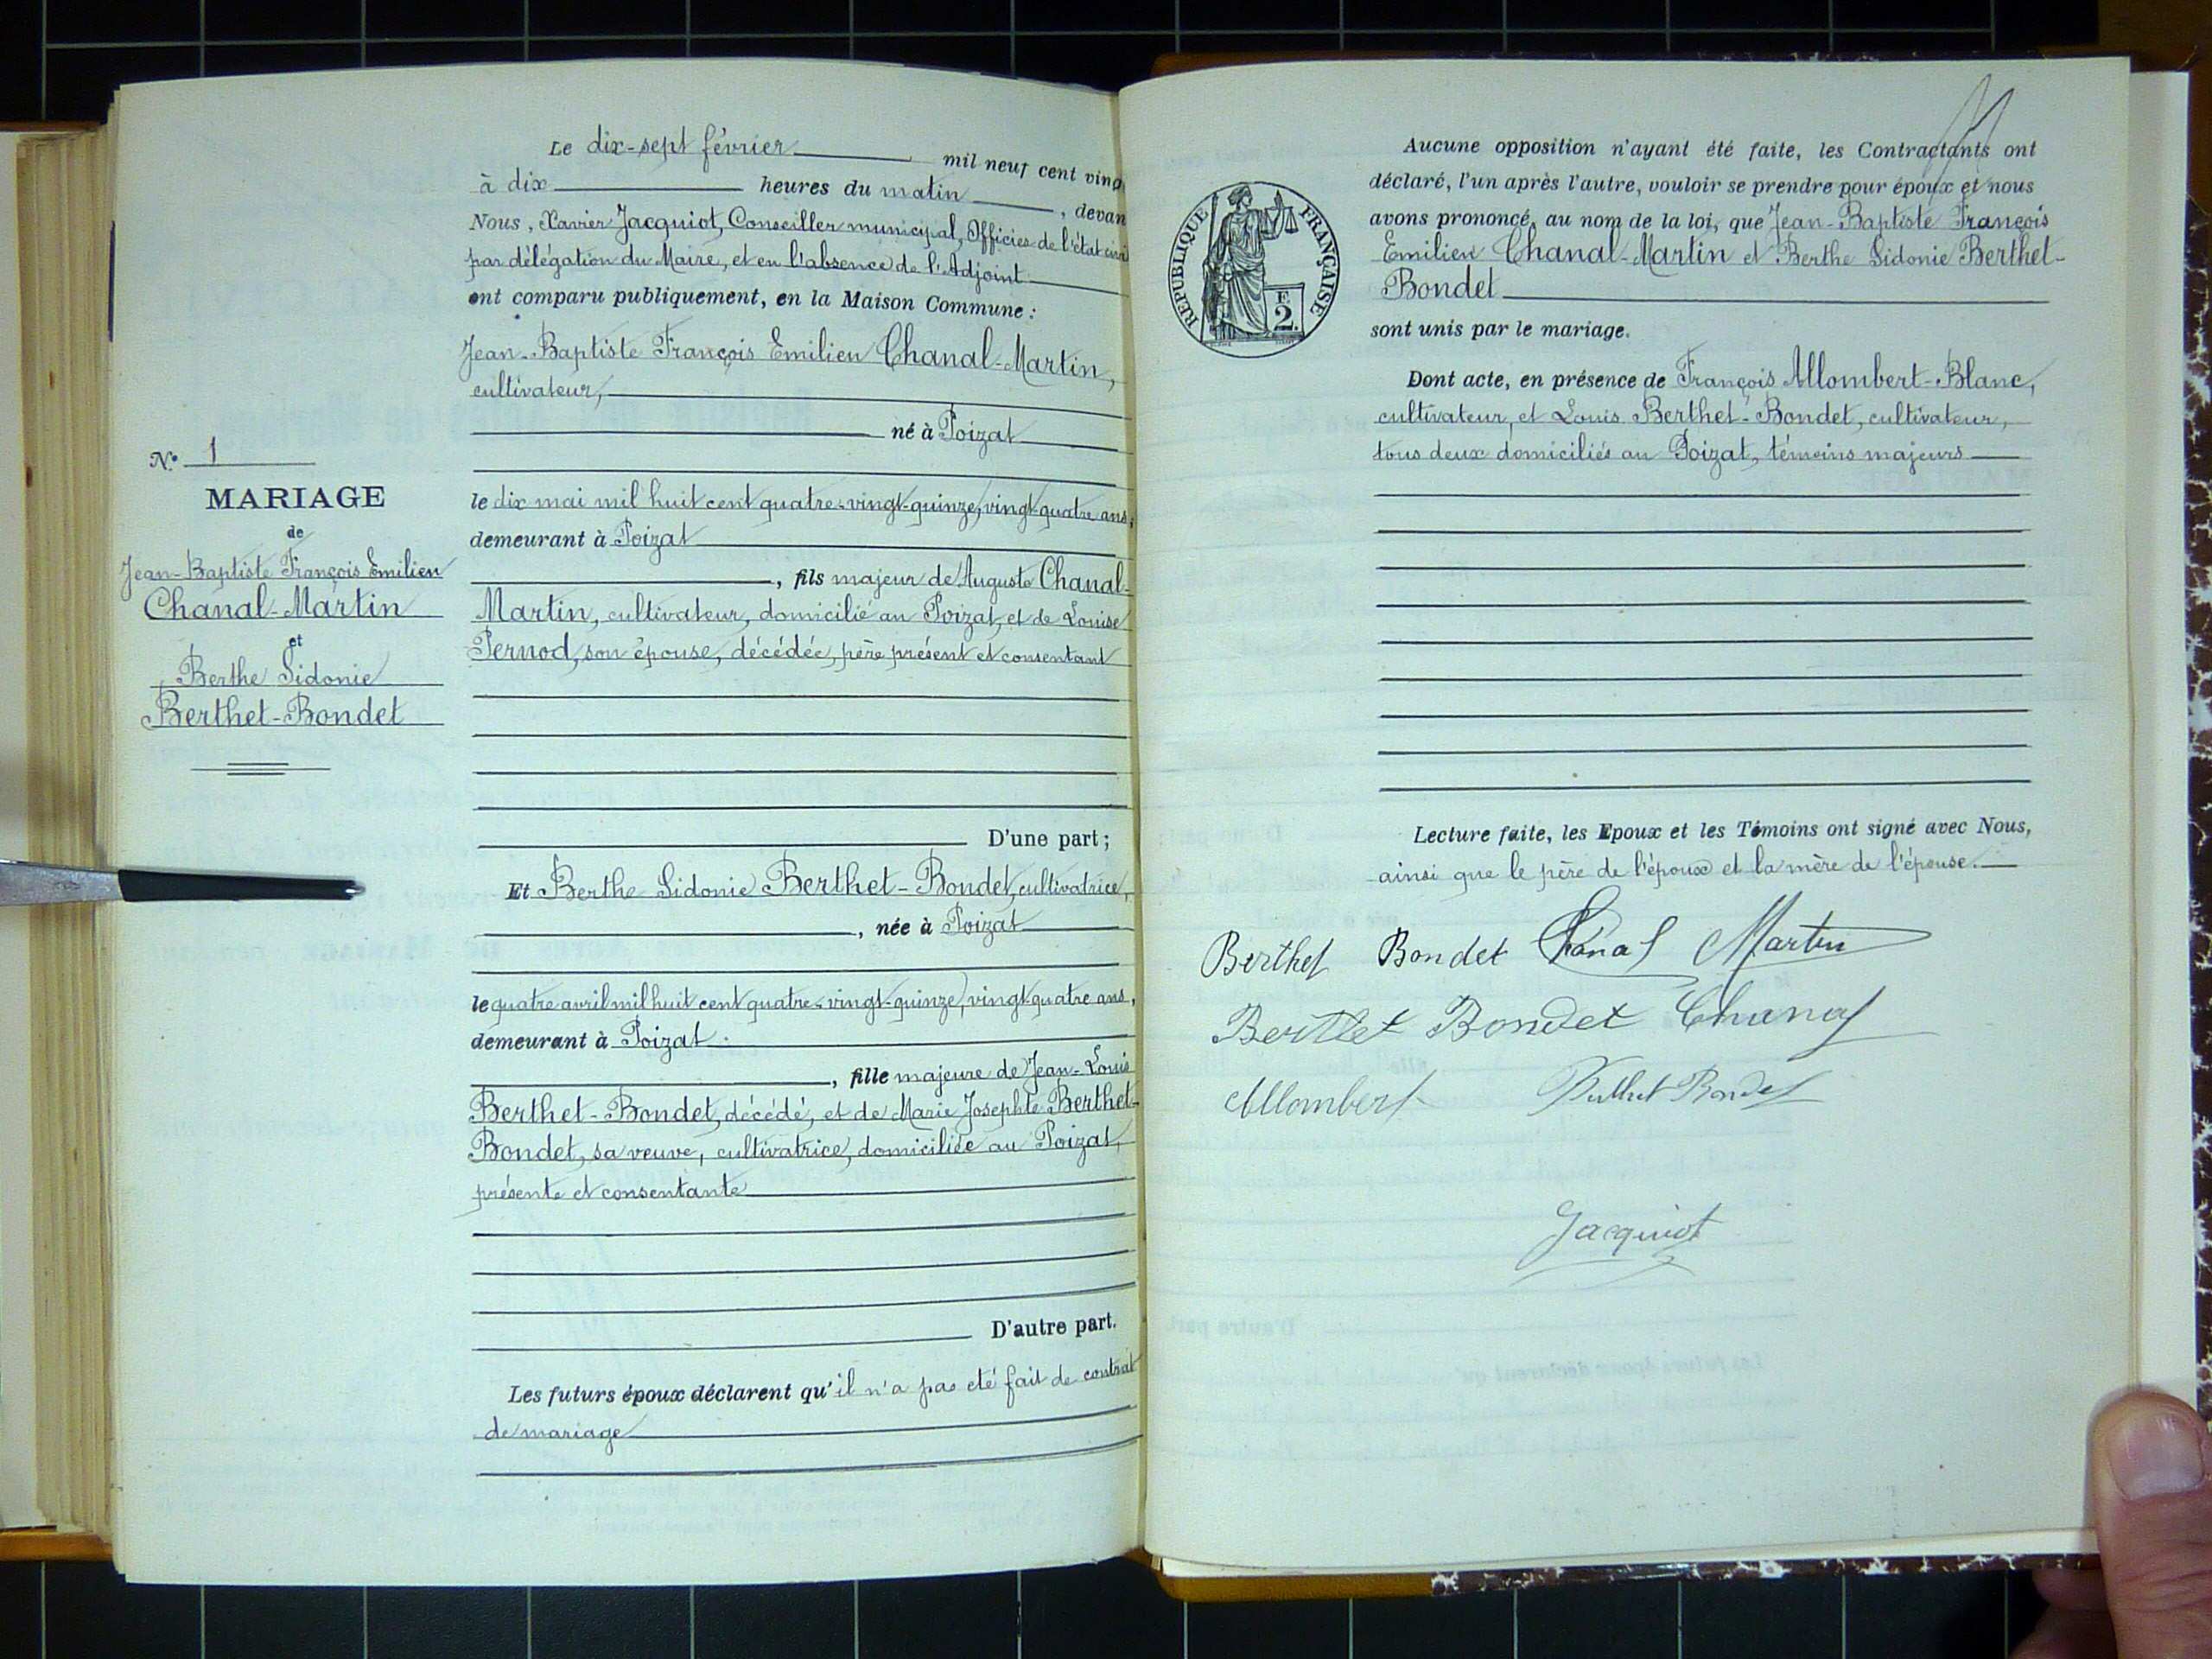 Le dix-sept février mil neuf cent ving
à dix heures du matin, devan
Nous, Xavier Jacquiot, Conseiller municipal, Officier de l'état civi
par délégation du Maire, et en l'absence de l'Adjoint
ont comparu publiquement, en la Maison Commune :
Jean-Baptiste François Emilien Chanal-Martin,
cultivateur,
né à Poizat
le dix mai mil huit cent quatre-vingt-quinze, vingt-quatre ans,
demeurant à Poizat
, fils majeur de Auguste Chanal-
Martin, cultivateur, domicilié au Poizat, et de Louise
Pernod, son épouse, décédée, père présent et consentant
D'une part ;
Et Berthe Sidonie Berthet-Bondet, cultivatrice,
, née à Poizat
le quatre avril mil huit cent quatre-vingt-quinze, vingt-quatre ans,
demeurant à Poizat
, fille majeure de Jean-Louis
Berthet-Bondet, décédé, et de Marie Josephte Berthet-
Bondet, sa veuve, cultivatrice, domiciliée au Poizat,
présente et consentante
D'autre part.
Les futurs époux déclarent qu'il n'a pas eté fait de contrat
de mariage
N° 1
MARIAGE
de
Jean-Baptiste François Emilien
Chanal-Martin
et
Berthe Sidonie
Berthet-Bondet
RÉPUBLIQUE FRANÇAISE
F.
2.
Aucune opposition n'ayant été faite, les Contractants ont
déclaré, l'un après l'autre, vouloir se prendre pour époux et nous
avons prononcé, au nom de la loi, que Jean-Baptiste François
Emilien Chanal-Martin et Berthe Sidonie Berthet-
Bondet
sont unis par le mariage.
Dont acte, en présence de François Allombert-Blanc,
cultivateur, et Louis Berthet-Bondet, cultivateur,
tous deux domiciliés au Poizat, témoins majeurs
Lecture faite, les Epoux et les Témoins ont signé avec Nous,
ainsi que le père de l'époux et la mère de l'épouse.
Berthet Bondet Chanal Martin
Berthet Bondet Chanal
Allombert Berthet Bondet
Jacquiot